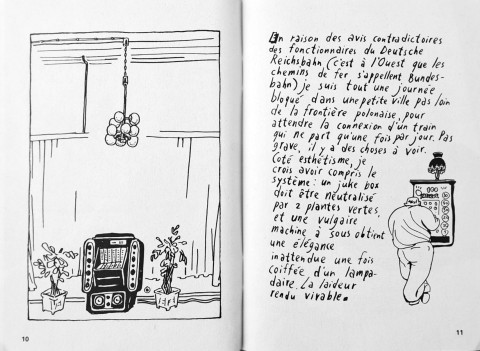 En raison des avis contradictoires
des fonctionnaires du Deutsche
Reichsbahn (c'est à l'Ouest que les
chemins de fer s'appellent Bundes-
bahn) je suis tout une journée
bloqué dans une petite ville pas loin
de la frontière polonaise, pour
attendre la connexion d'un train
qui ne part qu'une fois par jour. Pas
grave, il y a des choses à voir.
Coté esthétisme, je
crois avoir compris le
système : un juke box
doit être neutralisé
par 2 plantes vertes,
et une vulgaire
machine à sous obtient
une élégance
inattendue une fois
coiffée d'un lampa-
daire. La laideur
rendu vivable.
10
11